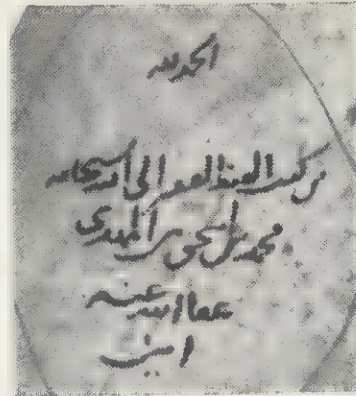 الحمد لله
من كتب العبد الفقير الى الله سبحانه
محمد بن المهدى
عفا الله عنه
امين